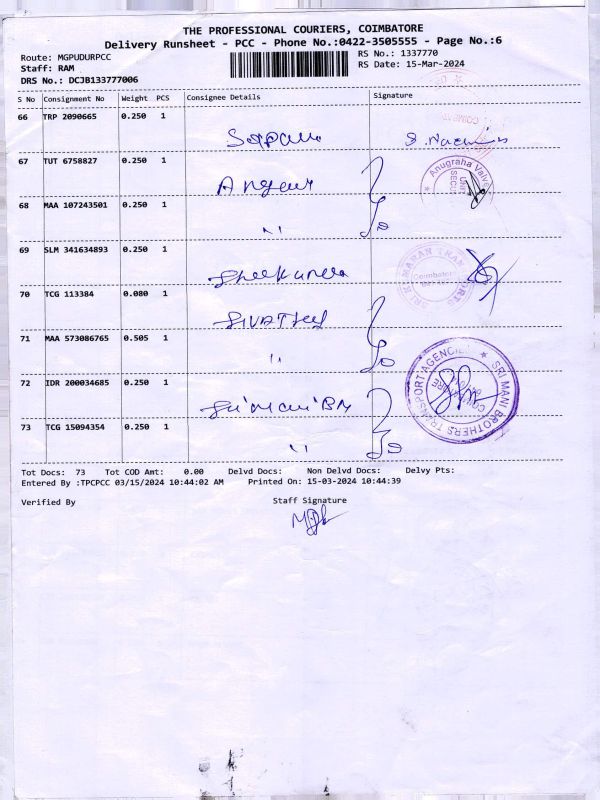 THE PROFESSIONAL COURIERS, COIMBATORE
Delivery Runsheet - PCC - Phone No.:0422-3505555 - Page No.:6
Route: MGPUDURPCC
RS No.: 1337770
Staff: RAM
RS Date: 15-Mar-2024
DRS No.: DCJB133777006
S No Consignment No Weight PCS Consignee Details Signature
66 TRP 2090665 0.250 1
67 TUT 6758827 0.250 1
Anugraha Valve
68 MAA 107243501 0.250 1
"
69 SLM 341634893 0.250 1
Coimbatore
70 TCG 113384 0.080 1
71 MAA 573086765 0.505 1
"
72 IDR 200034685 0.250 1
SRI MANI BROTHERS TRANSPORT AGENCIES
COIMBATORE
73 TCG 15094354 0.250 1
"
Tot Docs: 73 Tot COD Amt: 0.00 Delvd Docs: Non Delvd Docs: Delvy Pts:
Entered By :TPCPCC 03/15/2024 10:44:02 AM Printed On: 15-03-2024 10:44:39
Verified By Staff Signature